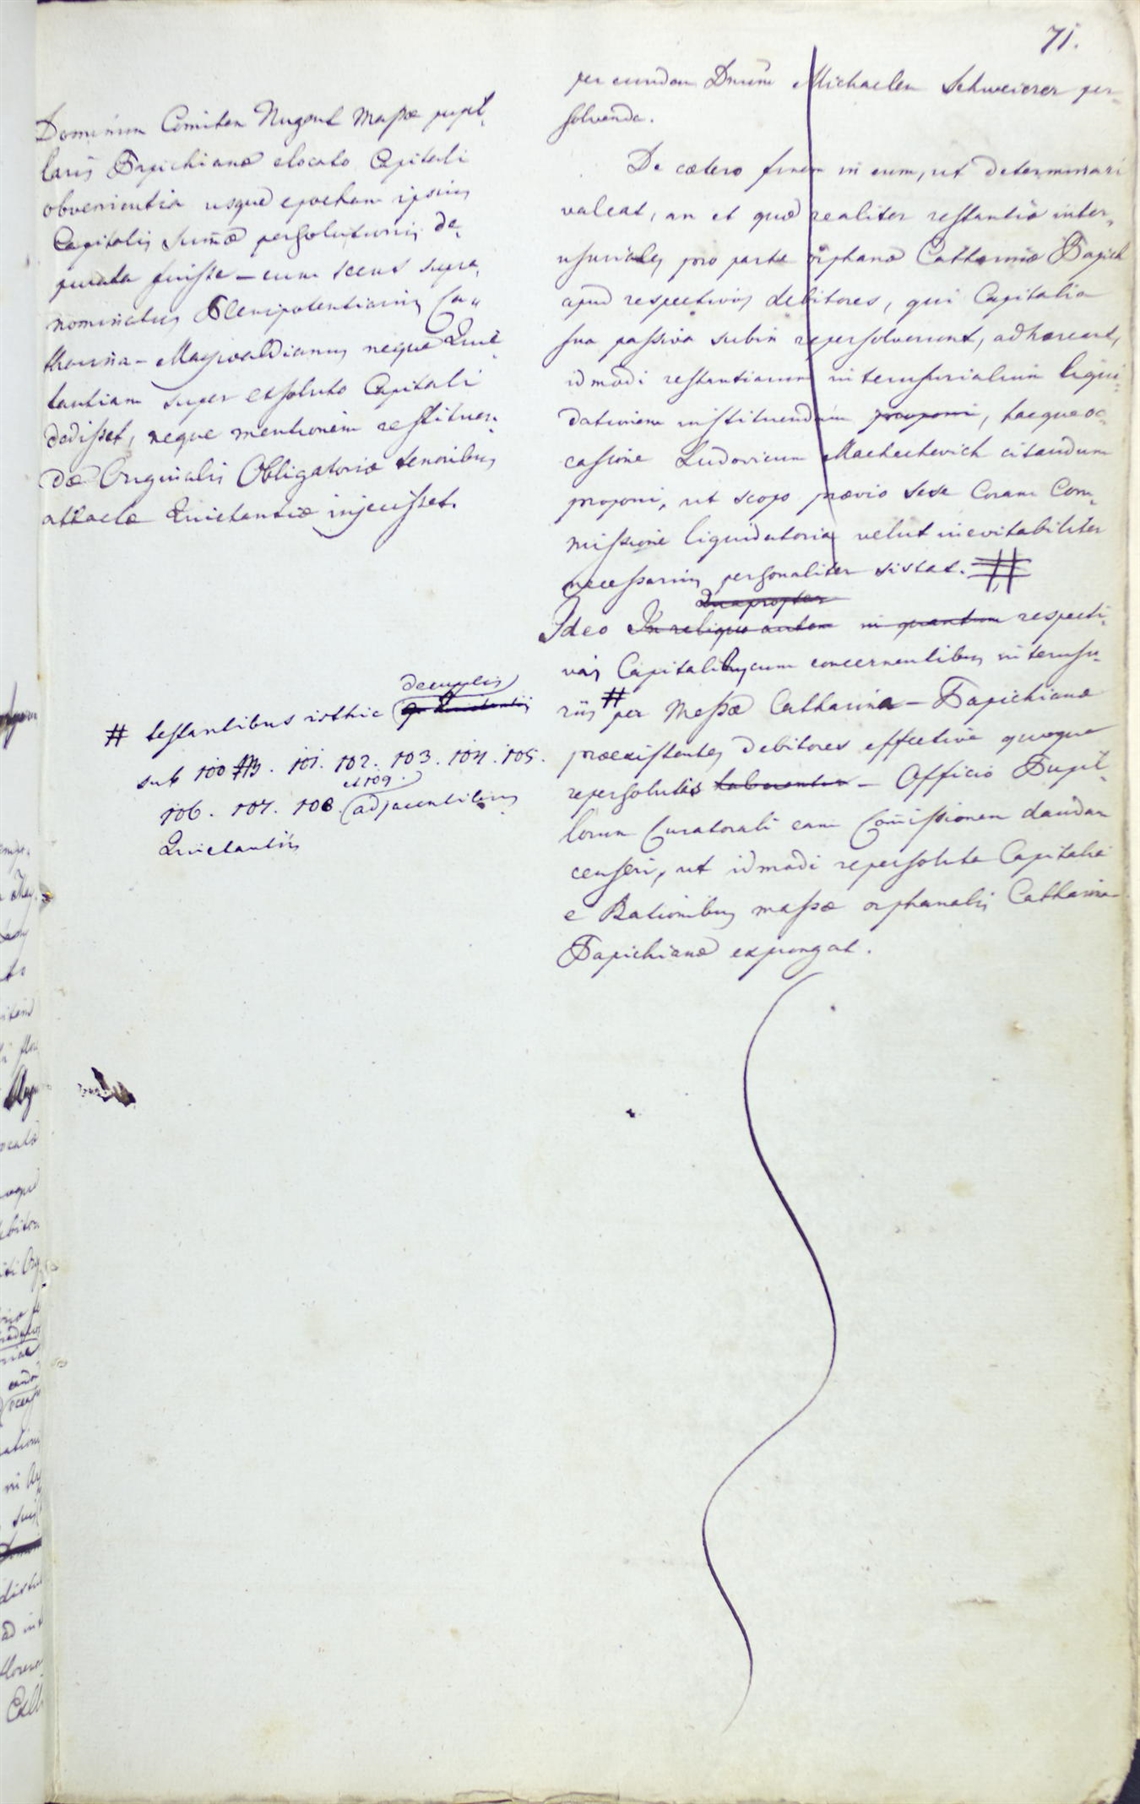 71.
Dominum Comitem Nugent Massæ pupil-
laris Papichianæ elocato Capitali
obvenientia usque epocham ipsius
Capitalis Summæ persolutionis de-
purata fuisse – cum secus supra-
nominatus Plenipotentiarius Ca-
tharina – Maywaldianus neque Quie-
tantiam super exsoluto Capitali
dedisset, neque mentionem restituen-
dæ Originalis Obligatoriæ tenoribus
attactæ Quietantiæ injecisset.
# testantibus isthic decuplis
sub 100. 101. 102. 103. 104. 105.
106. 107. 108. et 109. adjacentibus
Quietantiis
per eundem Dnum Michaelem Schweizer per-
solvenda.
De cætero finem in eum, ut determinari
valeat, an et quæ realiter restantia inter-
usuriales pro parte orphanæ Catharinæ Papich
apud respectivos debitores, qui Capitalia
sua passiva subin repersolverunt, adhæreant,
idmodi restantiarum interusurialium liqui-
dationem instituendam proponi, hacque oc-
cassione Ludovicum Machechevich citandum
proponi, ut scopo prævio sese Coram Com-
missione liquidatoria velut inevitabiliter
necessarius personaliter sistat. #
Quapropter
Ideo In reliquo autem in quantum respecti-
vas Capitalibus cum concernentibus interusu-
riis # per Massæ Catharina – Papichianæ
præexistentes debitores effective quoque
repersolutis haberentur – Officio Pupil-
lorum Curatorali eam Commissionem dandam
censeri, ut idmodi repersoluta Capitalia
e Rationibus massæ orphanalis Catharina
Papichianæ expungat.